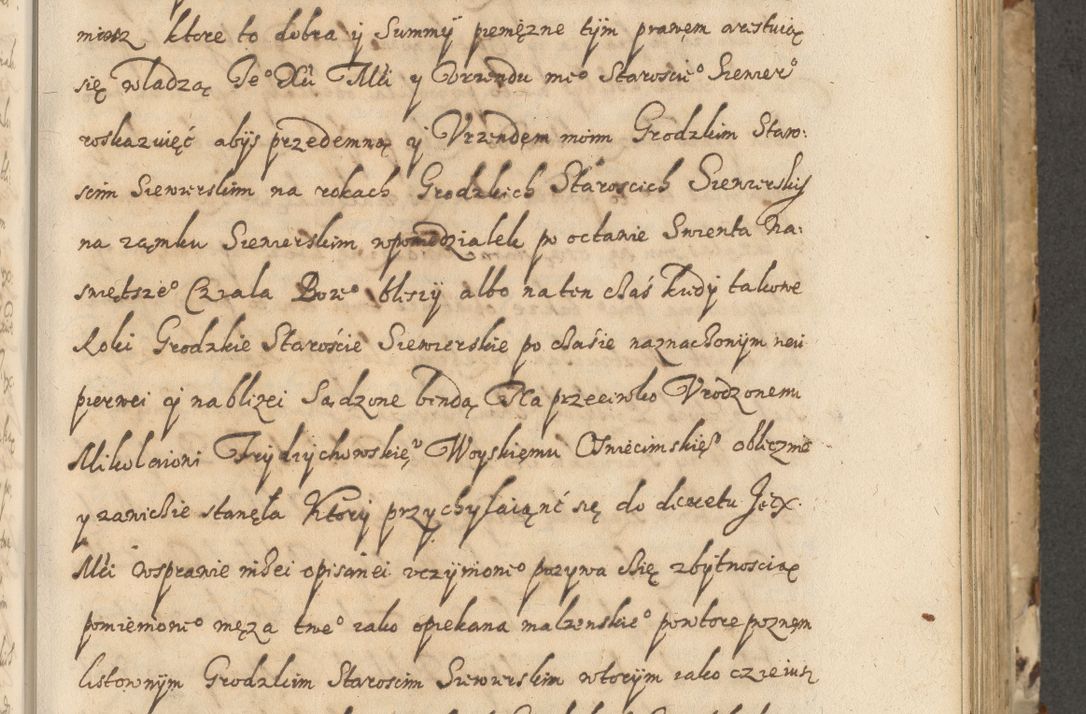 miasz ktore to dobra y Summÿ pieniężne tÿm prawem arestuią
się władzą Je° Xći Mći y Vrzendu me° Staroscie° Siewier°
roskazuięć abÿs przedemną ÿ Vrzendem moim Grodzkim Staro:
scim Siewierskim na rokach Grodzkich Staroscich Siewierskÿ
na zamku Siewierskim wponiedzialek po octawie Swienta Na:
swiętsze° Cziala Boze° bliszÿ albo na ten chas kiedy takowe
Roki Grodzkie Staroscie Siewierskie po chasie naznachonÿm nai
pierwei ÿ nablizei Sądzone bendą Na przeciwko Vrodzonemu
Mikolaiowi Frÿdrÿchowskie° Woyskiemu Oswiecimskie° oblicznie
y zawicie stanęła Ktorÿ przychylaiąnć się do decretu Jeix.
Mći wsprawie niżei opisanei vczÿnione° pozywa chię zbÿtnoscią
pomienione° męza twe° iako opiekana malzenskie° powtore poznem
listownÿm Grodzkim Staroscim Siewierskim wtorÿm iako cz